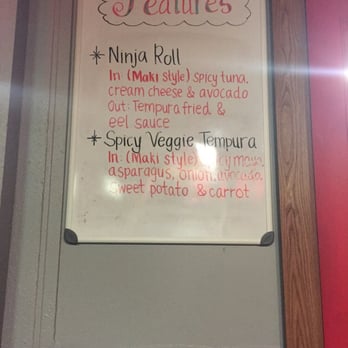 Features
* Ninja Roll
In (Maki style) spicy tuna,
cream cheese & avocado
Out: Tempura fried &
eel sauce
* Spicy Veggie Tempura
In: (Maki style) spicy mayo,
asparagus, onion, avocado,
sweet potato & carrot